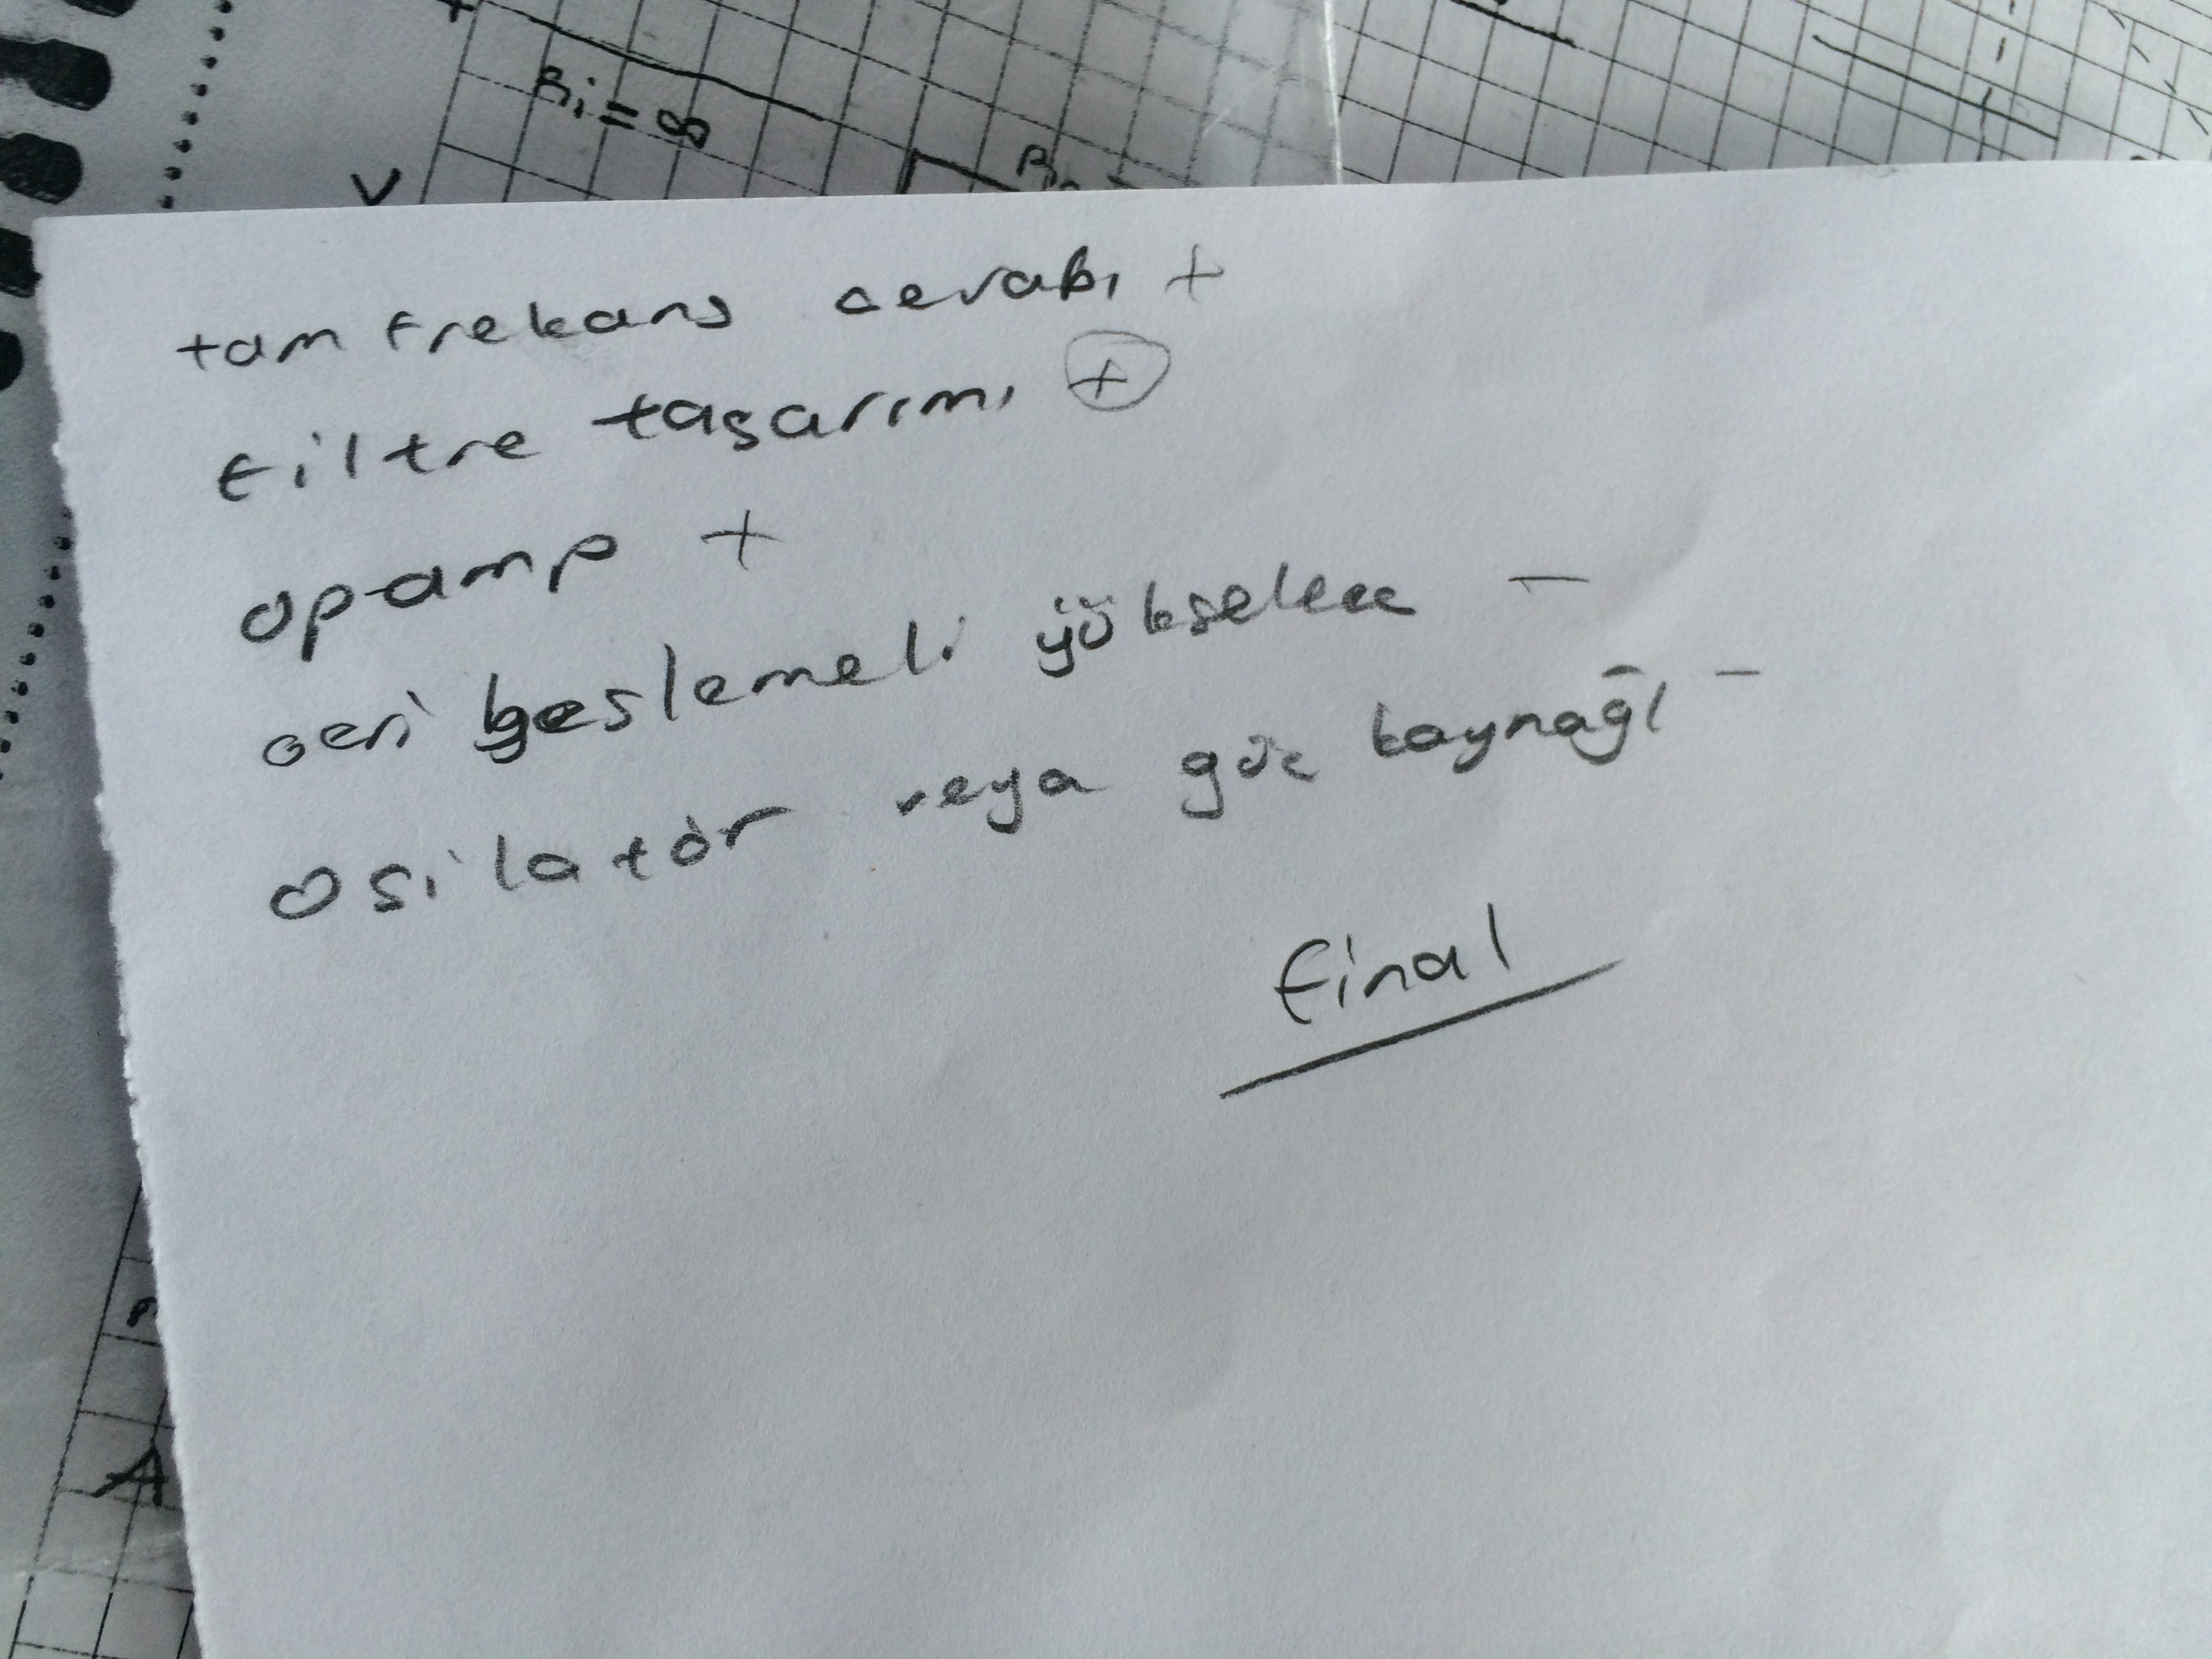 Ri = ∞
V
tam frekans cevabı +
filtre tasarımı +
opamp +
geri beslemeli yükselteç -
osilatör veya güç kaynağı -
final
A